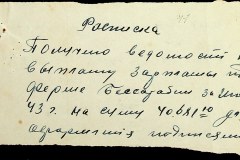 Расписка
Получено ведомость
выплату зарплаты
ферме Бессарабии за
43 г. на сумму 40681 10
оформления подписями